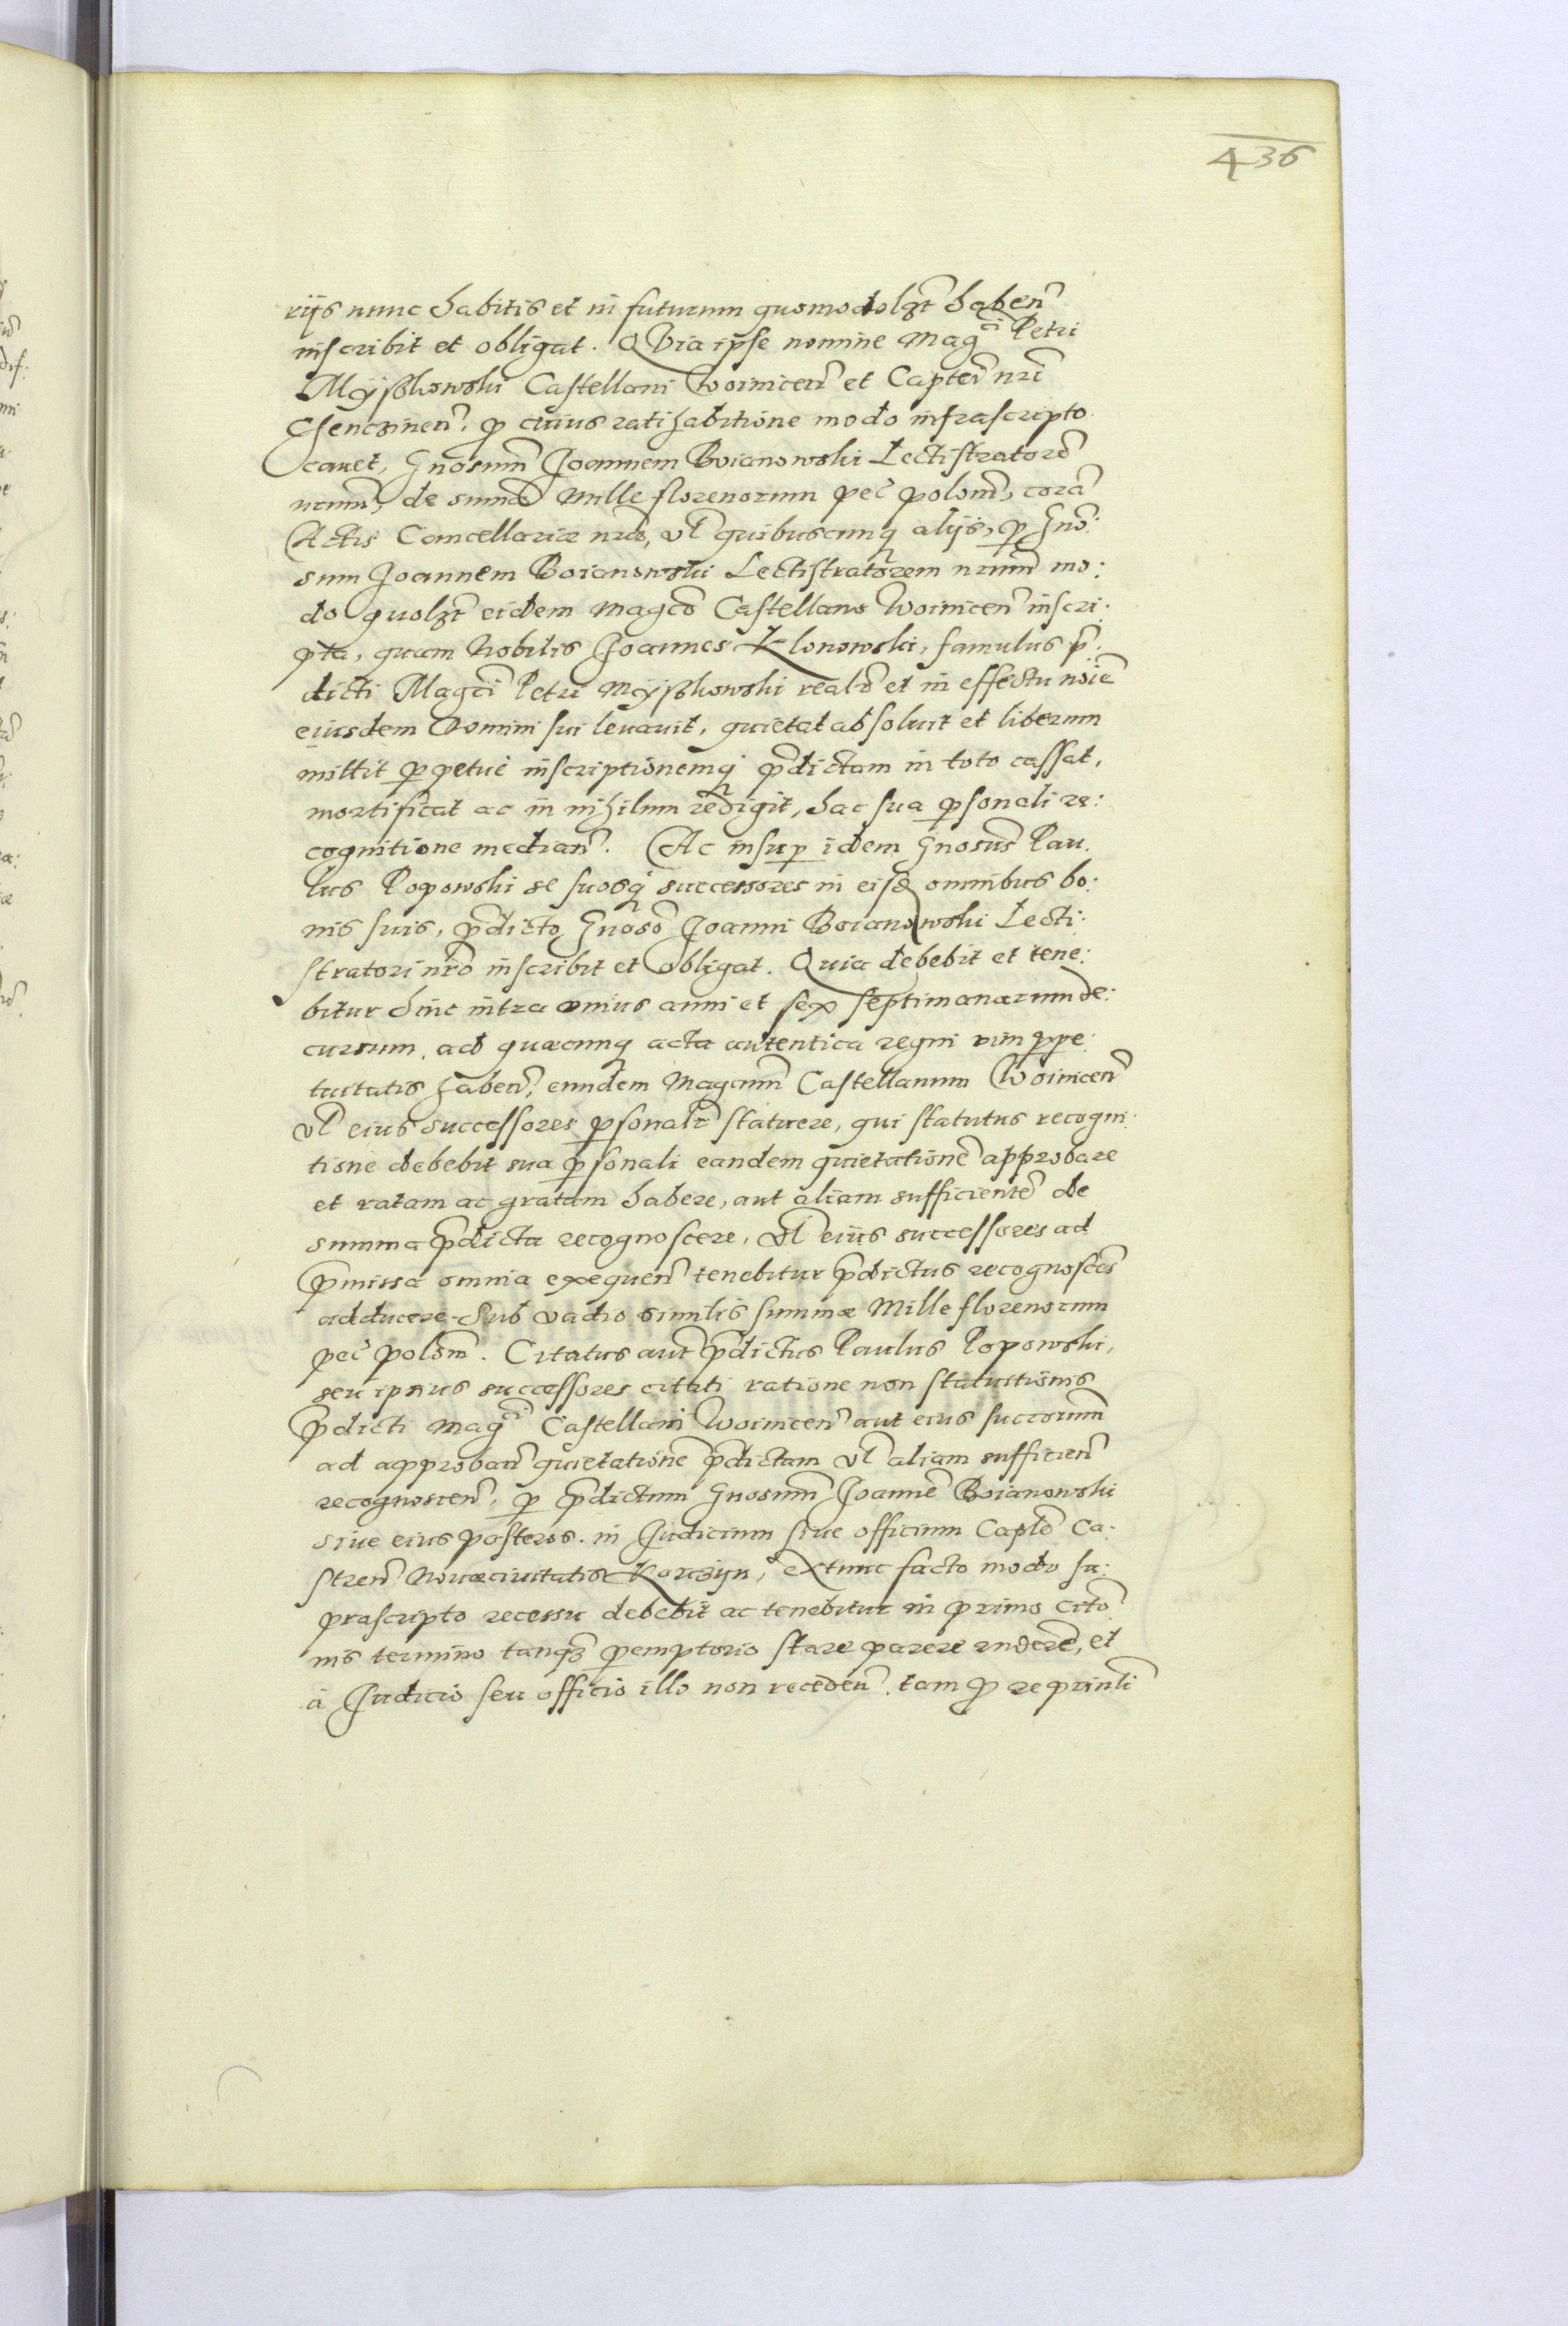 436
rijs nunc habitis et in futurum quomodolzt haben̄
inscribit et obligat. Quia ipse nomine Mag^ci Petri
Myszkowski Castellani Woinicen̄ et Captei nr̄i
Chencinen̄, p cuius ratihabitione modo infrascripto
cauet, Gnosum̄ Joannem Boianowski Lectistratorē
nrum̄, de summa Mille florenorum pec̄ polon̄, corā
Actis Cancellariæ nr̄æ, vl̄ quibuscunq alijs, p Gno:
sum Joannem Boianowski Lectistratorem nrum̄ mo:
do quolzt eidem Magco Castellano Woinicen̄ inscri:
pta, quam Nobilis Joannes Klonowski, famulus p̄:
dicti Magci Petri Myszkowski realr̄ et in effectu noīe
eiusdem Domini sui leuauit, quietat absoluit et liberum
mittit ppetue inscriptionemq p̄dictam in toto cassat,
mortificat ac in nihilum redigit, hac sua psonali re:
cognitione median̄. Ac insup idem Gnosus Pau:
lus Popowski se suosq successores in eisd omnibus bo:
nis suis, p̄dicto Gnoso Joanni Boianowski Lecti:
stratori nr̄o inscribit et obligat. Quia debebit et tene:
bitur hinc intra vnius anni et sex septimanarum de:
cursum, ad quæcunq acta autentica regni vim ppe:
tuitatis haben̄, eundem Magcum̄ Castellanum Woinicen̄
vl̄ eius successores psonalr̄ statuere, qui statutus recogni:
tione debebit sua psonali eandem quietationē approbare
et ratam ac gratam habere, aut aliam sufficientē de
summa p̄dicta recognoscere, vl̄ eius successores ad
p̄missa omnia exequen̄ tenebitur p̄dictus recognoscēs
adducere. Sub vadio similis summæ Mille florenorum
pec̄ polon̄. Citatus aut̄ p̄dictus Paulus Popowski,
seu ipsius successores citati ratione non statuitionis
p̄dicti Mag^ci Castellani Woinicen̄ aut eius succorum̄
ad approban̄ quietationē p̄dictam vl̄ aliam sufficien̄
recognoscen̄, p p̄dictum Gnosum̄ Joannē Boianowski
siue eius posteros. in Judicium siue officium Captle Ca:
stren̄ Nouæciuitatis Korczyn, extunc facto modo su:
prascripto recessu debebit ac tenebitur in primo cito:
nis termino tanqz pemptorio stare parere rndere, et
à Judicio seu officio illo non receden̄. tam p re prinli